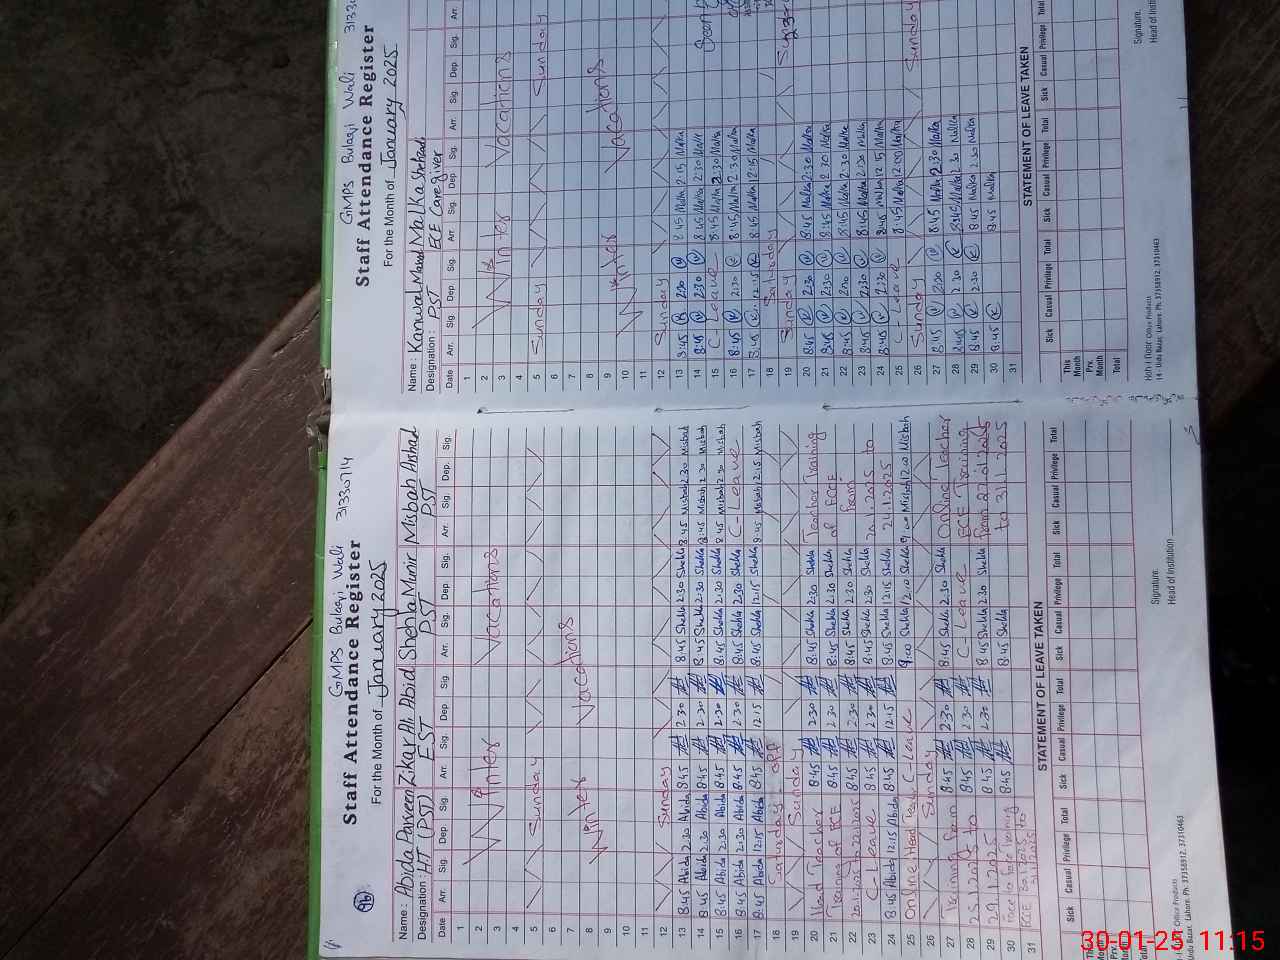 96
GMPS Bulaqi Wali 31330714
Staff Attendance Register
For the Month of January 2025
Name: Abida Parveen Zikar Ali Abid Shehla Munir Misbah Arshad
Designation: HT (PST) EST PST PST
Date Arr. Sig. Dep. Sig. Arr. Sig. Dep. Sig. Arr. Sig. Dep. Sig. Arr. Sig. Dep. Sig.
1
2 Winter Vacations
3
4
5 Sunday
6
7
8 Winter Vacations
9
10
11
12 Sunday
13 8:45 Abida 2:30 Abida 8:45 2:30 8:45 Shehla 2:30 Shehla 8:45 Misbah 2:30 Misbah
14 8:45 Abida 2:30 Abida 8:45 2:30 8:45 Shehla 2:30 Shehla 8:45 Misbah 2:30 Misbah
15 8:45 Abida 2:30 Abida 8:45 2:30 8:45 Shehla 2:30 Shehla 8:45 Misbah 2:30 Misbah
16 8:45 Abida 2:30 Abida 8:45 2:30 8:45 Shehla 2:30 Shehla C-Leave
17 8:45 Abida 12:15 Abida 8:45 12:15 8:45 Shehla 12:15 Shehla 8:45 Misbah 12:15 Misbah
18 Saturday off
19 Sunday
20 Head Teacher 8:45 2:30 8:45 Shehla 2:30 Shehla Teacher Training
21 Training of ECE 8:45 2:30 8:45 Shehla 2:30 Shehla of ECE
22 20.1.2025 to 22.1.2025 8:45 2:30 8:45 Shehla 2:30 Shehla from
23 C-Leave 8:45 2:30 8:45 Shehla 2:30 Shehla 20.1.2025 to
24 8:45 Abida 12:15 Abida 8:45 12:15 8:45 Shehla 12:15 Shehla 24.1.2025
25 Online Head C-Leave 9:00 Shehla 12:10 Shehla 9:00 Misbah 12:00 Misbah
26 Sunday
27 Training from 8:45 2:30 8:45 Shehla 2:30 Shehla Online Teacher
28 25.1.2025 to 8:45 2:30 C-Leave ECE Training
29 29.1.2025 8:45 2:30 8:45 Shehla 2:30 Shehla from 27.01.2025
30 Face to face Training 8:45 8:45 Shehla to 31.1.2025
31 ECE 30.1.2025 to 31.1.2025
STATEMENT OF LEAVE TAKEN
Sick Casual Privilege Total Sick Casual Privilege Total Sick Casual Privilege Total Sick Casual Privilege Total
This Month
Prv. Month
Total
Signature.
Head of Institution
Office Products
Urdu Bazar, Lahore. Ph: 37358912, 37310463
GMPS Bulaqi Wali 3133
Staff Attendance Register
For the Month of January 2025
Name: Kanwal Malka Shehzadi
Designation: PST ECE Caregiver
Date Arr. Sig. Dep. Sig. Arr. Sig. Dep. Sig. Arr. Sig. Dep. Sig. Arr.
1
2 Winter Vacations
3
4
5 Sunday Sunday
6
7
8
9 Winter Vacations
10
11
12 Sunday
13 8:45 2:30 8:45 Malka 2:15 Malka
14 8:45 2:30 8:45 Malka 2:30 Malka
15 C-Leave 8:45 Malka 2:30 Malka
16 8:45 2:30 8:45 Malka 2:30 Malka
17 8:45 12:15 8:45 Malka 12:15 Malka
18 Saturday
19 Sunday
20 8:45 2:30 8:45 Malka 2:30 Malka
21 8:45 2:30 8:45 Malka 2:30 Malka
22 8:45 2:30 8:45 Malka 2:30 Malka
23 8:45 2:30 8:45 Malka 2:30 Malka
24 8:45 2:30 8:45 Malka 12:15 Malka
25 C-Leave 8:45 Malka 12:00 Malka
26 Sunday Sunday
27 8:45 2:30 8:45 Malka 2:30 Malka
28 8:45 2:30 8:45 Malka 2:30 Malka
29 8:45 2:30 8:45 Malka 2:30 Malka
30 8:45 8:45 Malka
31
STATEMENT OF LEAVE TAKEN
Sick Casual Privilege Total Sick Casual Privilege Total Sick Casual Privilege Total
This Month
Prv. Month
Total
Signature.
Head of Institut
Office Products
14 - Urdu Bazar, Lahore. Ph: 37358912, 37310463
30-01-25 11:15